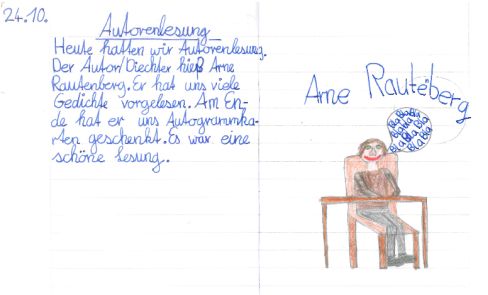 24.10.
Autorenlesung
Heute hatten wir Autorenlesung.
Der Autor/Diechter hieß Arne
Rautenberg. Er hat uns viele
Gedichte vorgelesen. Am En-
de hat er uns Autogrammka-
rten geschenkt. Es war eine
schöne lesung..
Arne Rauteberg
Bla Bla
Bla Bla Bla
Bla Bla Bla
Bla Bla Bla
Bla Bla